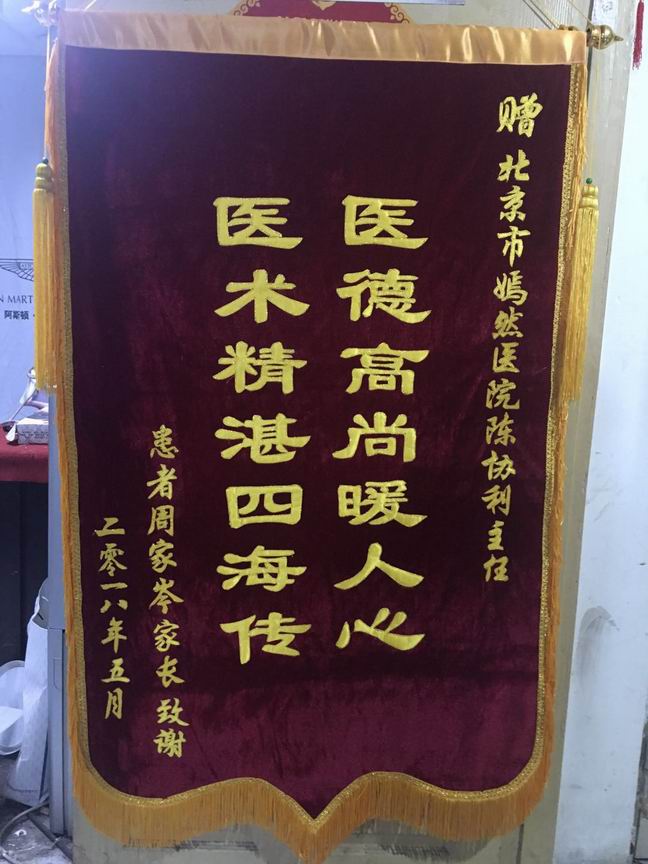 赠北京市嫣然医院陈协利主任
医德高尚暖人心
医术精湛四海传
患者周家岑家长致谢
二零一八年五月
N MART
阿斯顿·